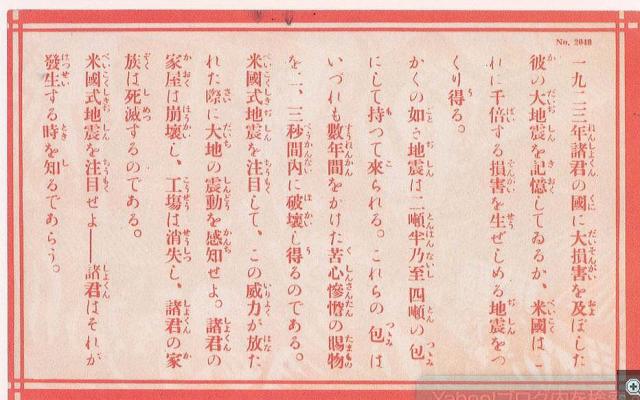 No. 2048
一九二三年諸君の國に大損害を及ぼした
彼の大地震を記憶してゐるか、米國はこ
れに千倍する損害を生ぜしめる地震をつ
くり得る。
かくの如き地震は二噸半乃至四噸の包
にして持つて來られる。これらの包は
いづれも數年間をかけた苦心慘憺の賜物
を二、三秒間内に破壞し得るのである。
米國式地震を注目して、この威力が放た
れた際に大地の震動を感知せよ。諸君の
家屋は崩壞し、工場は消失し、諸君の家
族は死滅するのである。
米國式地震を注目せよ――諸君はそれが
發生する時を知るであらう。
Yahoo!ブログ内を検索